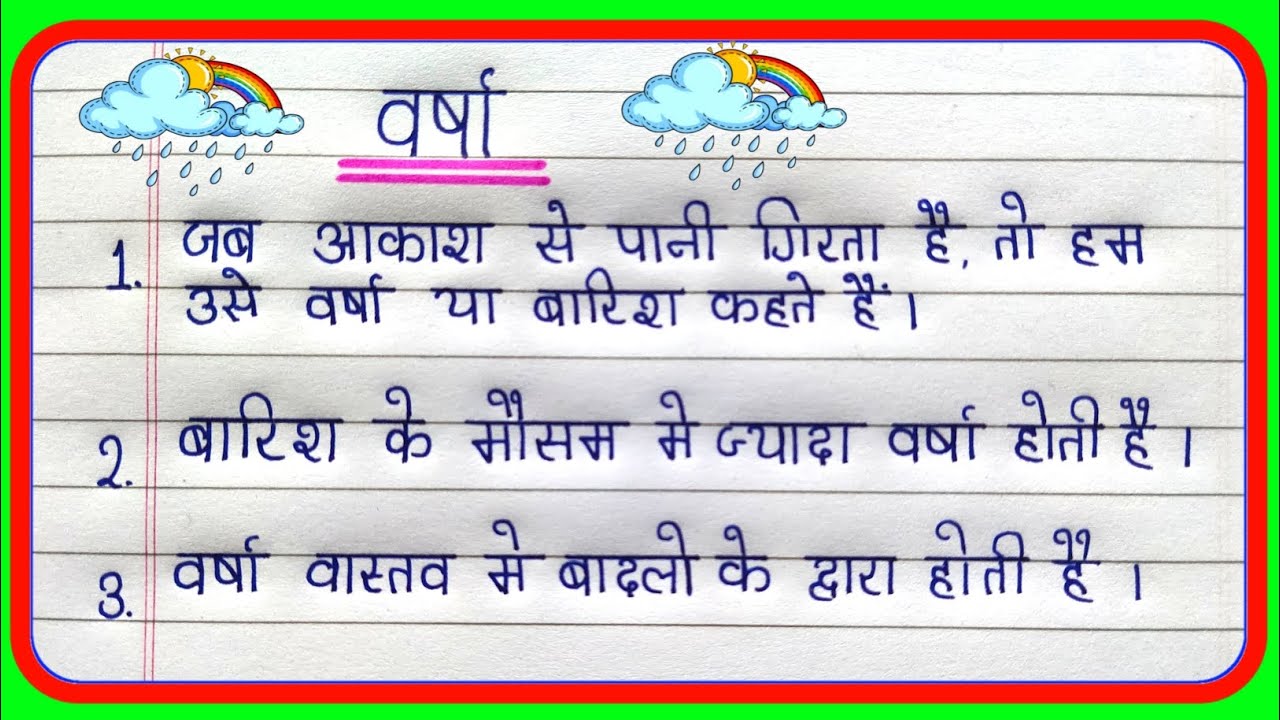 वर्षा
1. जब आकाश से पानी गिरता है, तो हम
उसे वर्षा या बारिश कहते हैं।
2. बारिश के मौसम मे ज्यादा वर्षा होती है।
3. वर्षा वास्तव मे बादलो के द्वारा होती है।